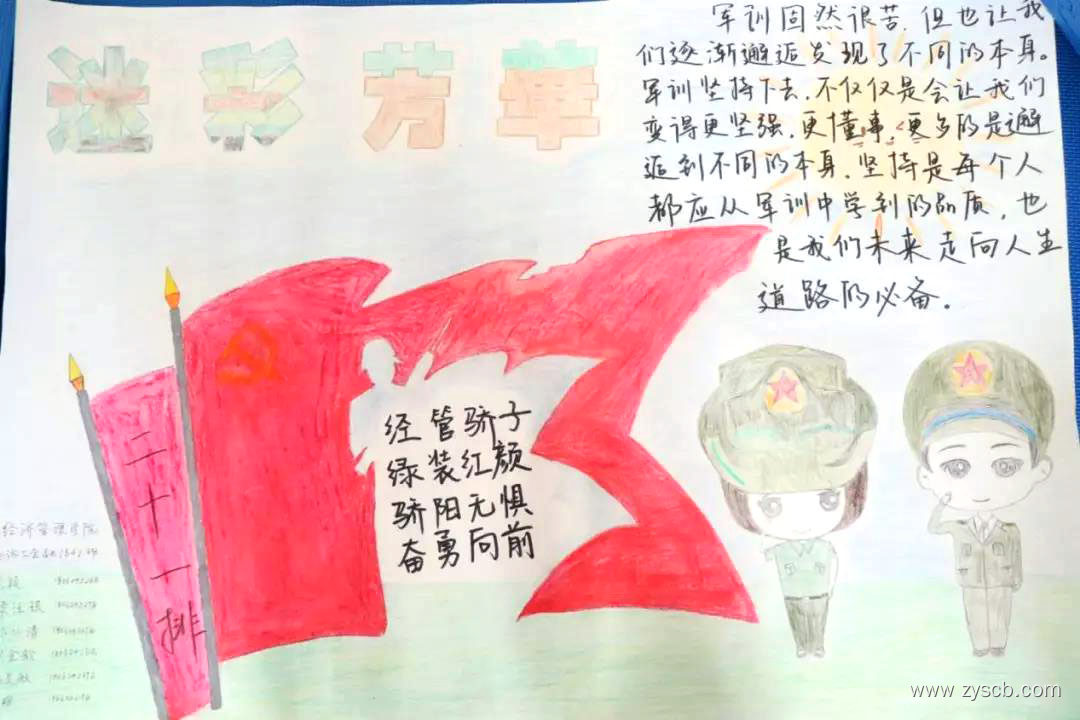 迷彩芳華
军训固然很苦,但也让我
们逐渐邂逅发现了不同的本身。
军训坚持下去,不仅仅是会让我们
变得更坚强,更懂事,更多的是邂
逅到不同的本身,坚持是每个人
都应从军训中学到的品质,也
是我们未来走向人生
道路的必备.
经管骄子
绿装红颜
骄阳无惧
奋勇向前
二十一排
经济管理学院
www.zyscb.com